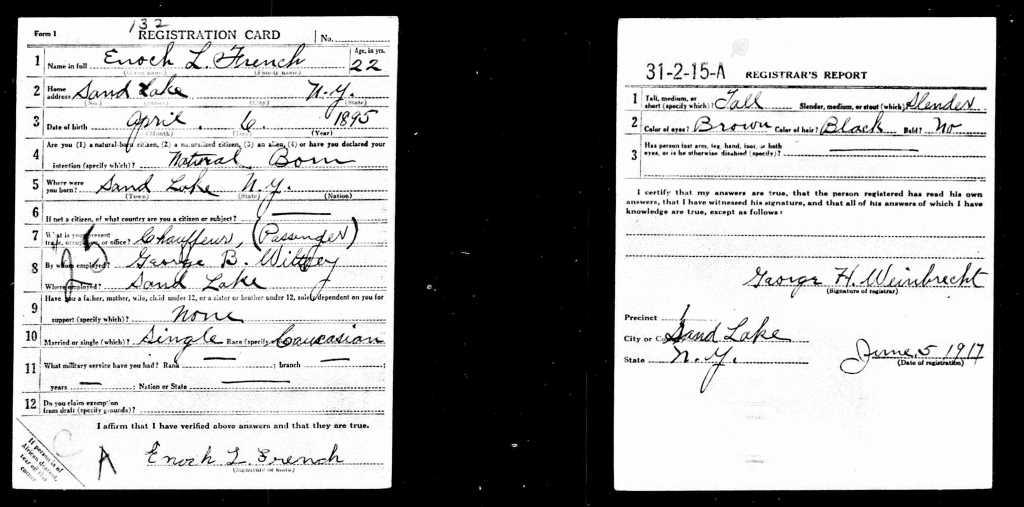 132
Form 1 REGISTRATION CARD No.
1 Name in full Enoch L. French Age, in yrs. 22
(Given name) (Family name)
2 Home address Sand Lake N.Y.
(No.) (Street) (City) (State)
3 Date of birth April 6 1895
(Month) (Day) (Year)
4 Are you (1) a natural-born citizen, (2) a naturalized citizen, (3) an alien, (4) or have you declared your
intention (specify which)? Natural Born
5 Where were you born? Sand Lake N.Y.
(Town) (State) (Nation)
6 If not a citizen, of what country are you a citizen or subject?
7 What is your present trade, occupation, or office? Chauffeur, (Passenger)
25
8 By whom employed? George B.
Where employed? Sand Lake
9 Have you a father, mother, wife, child under 12, or a sister or brother under 12, solely dependent on you for
support (specify which)? None
10 Married or single (which)? Single Race (specify which)? Caucasian
11 What military service have you had? Rank ; branch ;
years ; Nation or State
12 Do you claim exemption from draft (specify grounds)?
I affirm that I have verified above answers and that they are true.
If person is of African descent, tear off this corner
A
Enoch L. French
(Signature or mark)
31-2-15-A REGISTRAR'S REPORT
1 Tall, medium, or short (specify which)? Tall Slender, medium, or stout (which)? Slender
2 Color of eyes? Brown Color of hair? Black Bald? No
3 Has person lost arm, leg, hand, foot, or both
eyes, or is he otherwise disabled (specify)?
I certify that my answers are true, that the person registered has read his own
answers, that I have witnessed his signature, and that all of his answers of which I have
knowledge are true, except as follows:
George H. Weinbrecht
(Signature of registrar)
Precinct 1
City or County Sand Lake
State N.Y. June 5 1917
(Date of registration)